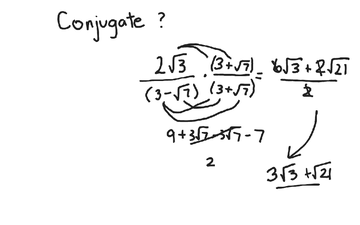 Conjugate ?
2√3 / (3-√7) · (3+√7) / (3+√7) = 6√3 + 2√21 / 2
9 + 3√7 - 3√7 - 7
2
3√3 + √21